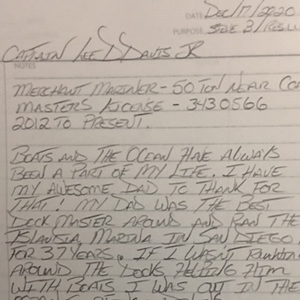 DATE Dec/17/2020
PURPOSE SIDE 2/RESU
CAPTAIN LEE D DAVIS JR
NOTES
MERCHANT MARINER - 50 TON NEAR COA
MASTERS LICENSE - 3430566
2012 TO PRESENT.
BOATS AND THE OCEAN HAVE ALWAYS
BEEN A PART OF MY LIFE. I HAVE
MY AWESOME DAD TO THANK FOR
THAT! MY DAD WAS THE BEST
DOCK MASTER AROUND AND RAN THE
ISLANDIA MARINA IN SAN DIEGO
FOR 37 YEARS. IF I WASN'T RUNNING
AROUND THE DOCKS HELPING HIM
WITH BOATS I WAS OUT IN THE